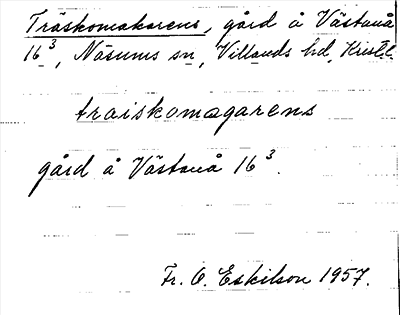 Träskomakarens, gård å Västanå
16³, Näsums sn, Villands hd, Kristl.
traiskomagarens
gård å Västanå 16³.
Fr. O. Eskilson 1957.